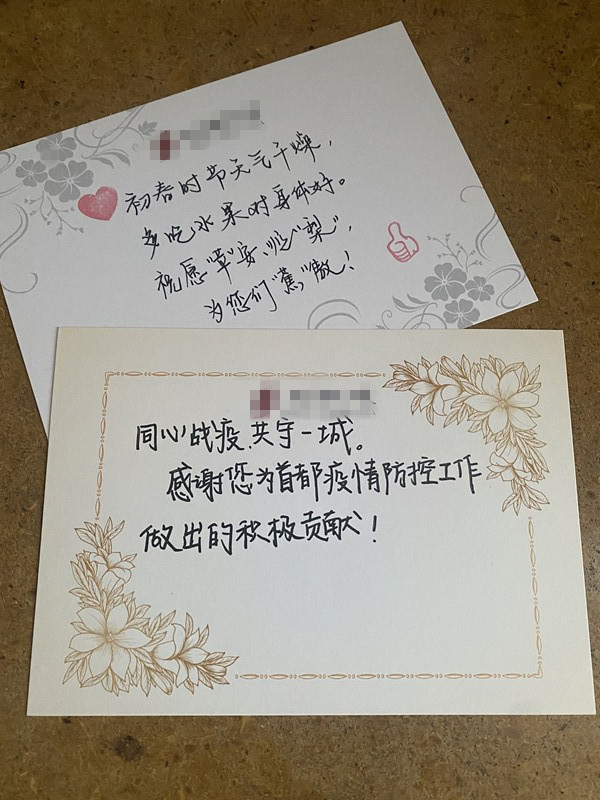 初春时节天气干燥，
多吃水果对身体好。
祝愿“草”安、顺“梨”，
为您们“蕉”傲！
同心战疫、共守一城。
感谢您为首都疫情防控工作
做出的积极贡献！